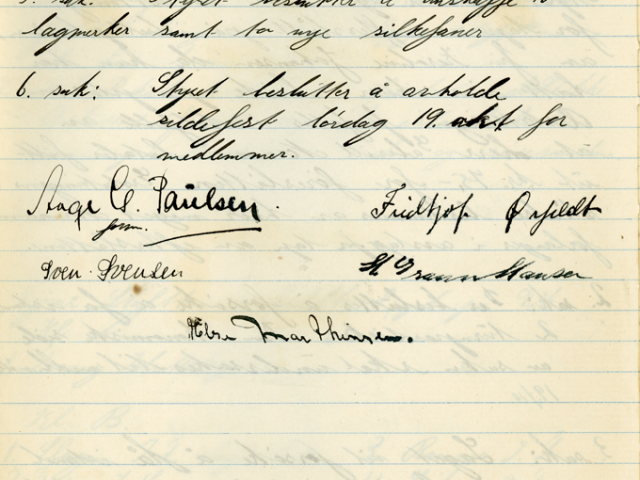 5. sak: Styret beslutter å anskaffe 10
lagmerker samt to nye silkefaner
6. sak: Styret beslutter å avholde
sildefest lørdag 19. okt for
medlemmer.
Aage G. Paulsen. Fridtjof Ørfeldt
form.
Sven Svensen
Marthinsen.